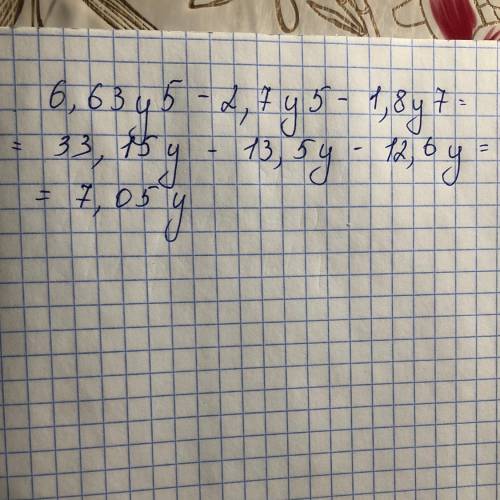 6,63y5 - 2,7y5 - 1,8y7 =
= 33,15y - 13,5y - 12,6y =
= 7,05y